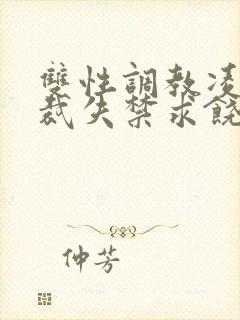 雙性調教凌
裁失禁求饒
仲芳